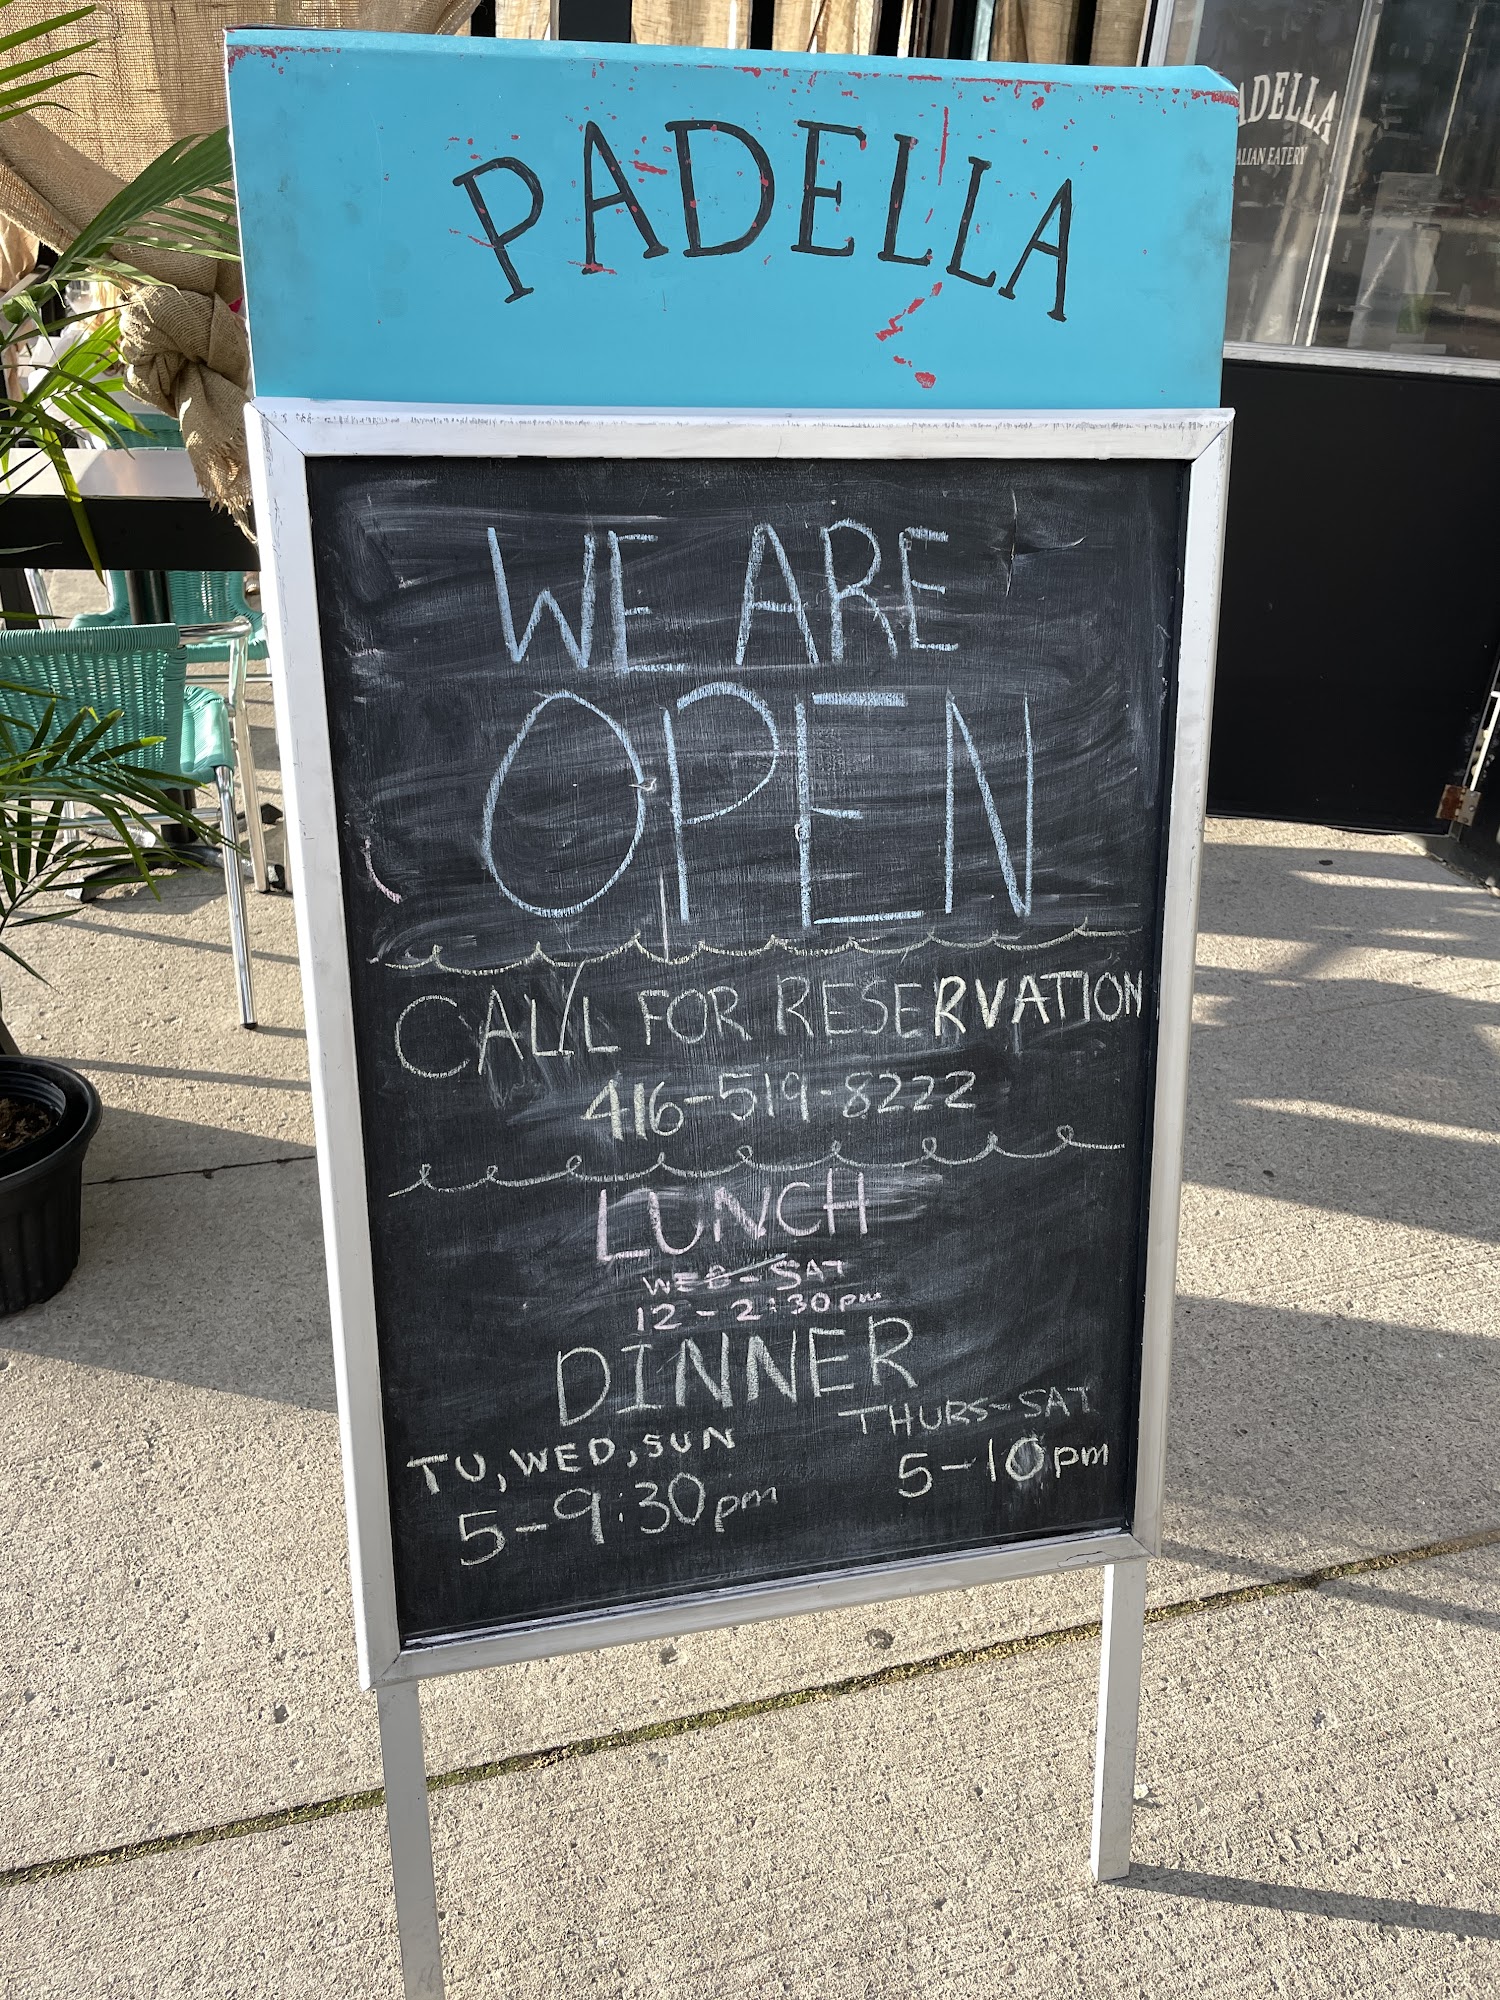 PADELLA
WE ARE
OPEN
CALL FOR RESERVATION
416-519-8222
LUNCH
WED-SAT
12-2:30pm
DINNER
TU, WED, SUN
5-9:30pm
THURS-SAT
5-10pm
ADELLA
ALIAN EATERY